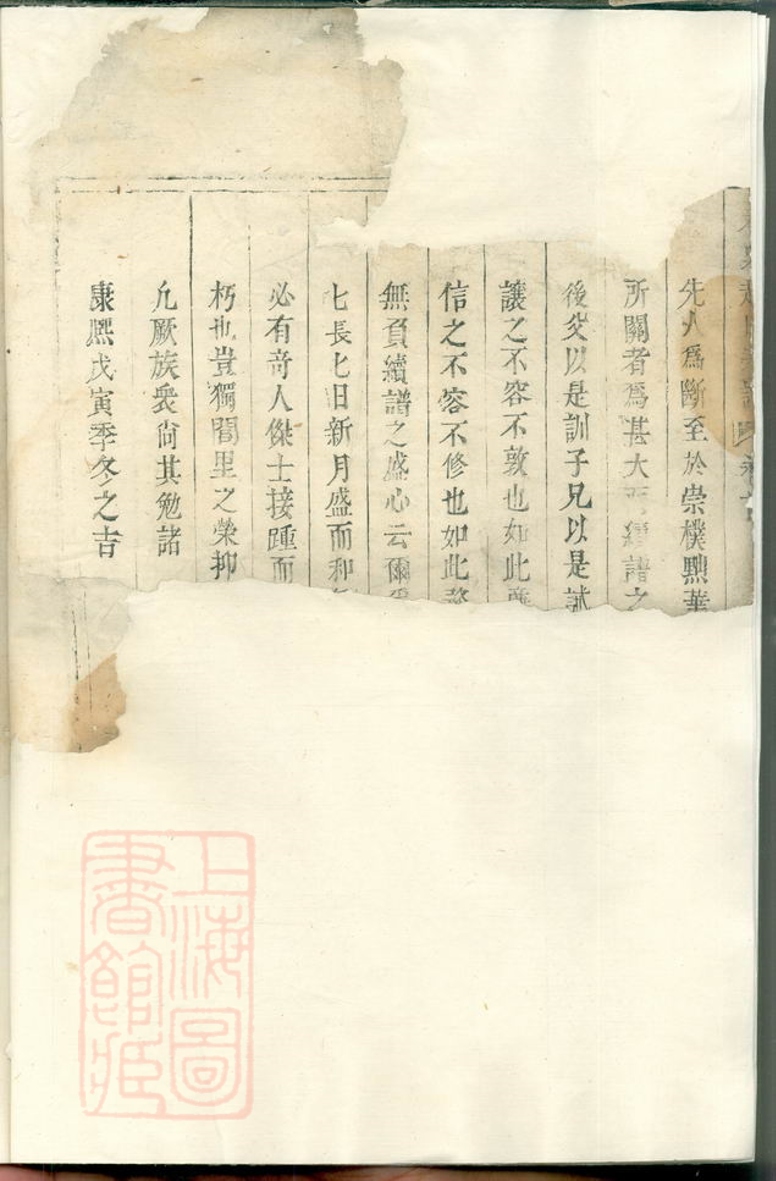 先人爲斷至於崇樸黜華
所關者爲甚大 續譜之
後父以是訓子兄以是試
讓之不容不敦也如此
信之不容不修也如此
無負續譜之盛心云爾
七長七旧新月盛而和
必有竒人傑士接踵而
朽也豈獨閭里之榮抑
凢厥族衆尚其勉諸
康熈戊寅季冬之吉
上海圖
書館藏